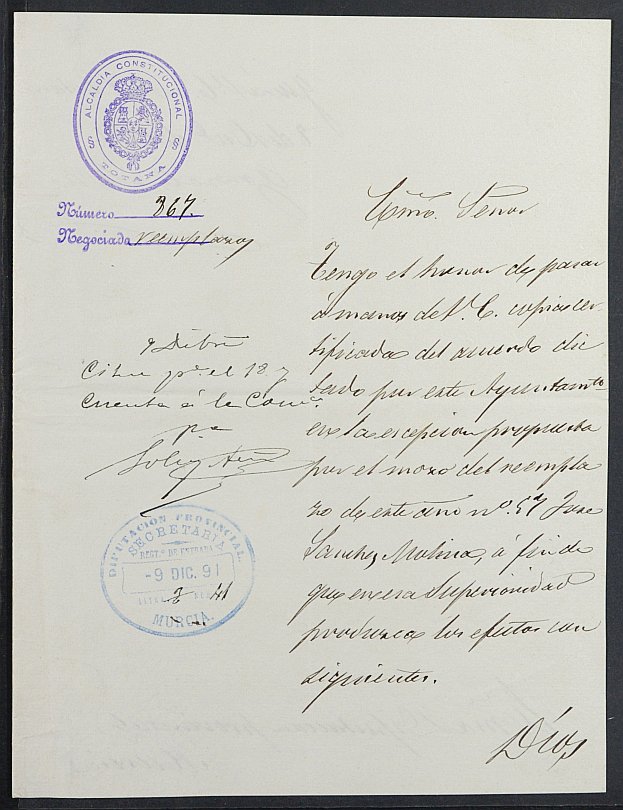 ALCALDIA CONSTITUCIONAL
TOTANA
Número 367.
Negociado reemplazos
Exmo. Señor
Tengo el honor de pasar
á manos de V. E. copia cer
tificada del acuerdo dic
tado por este Ayuntamto
en la escepcion propuesta
por el mozo del reempla
zo de este año nº. 57 Jose
Sanchez Molina, á fin de
que en esa Superioridad
produzca los efectos con
siguientes.
Dios
9 Dibre
Citu pª. el 18 y
Cuenta á la Comon.
DIPUTACION PROVINCIAL
SECRETARIA
REGTº DE ENTRADA
-9 DIC. 91
41
MURCIA.